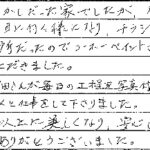 かしだった家でしたが、
目に付く様になり、チラシ
所だったのでつホーペイント
だきました。
田さんが毎日の工程を写真
んと仕事をして下さりました。
以上に美しくなり、安心
ありがとうございました。